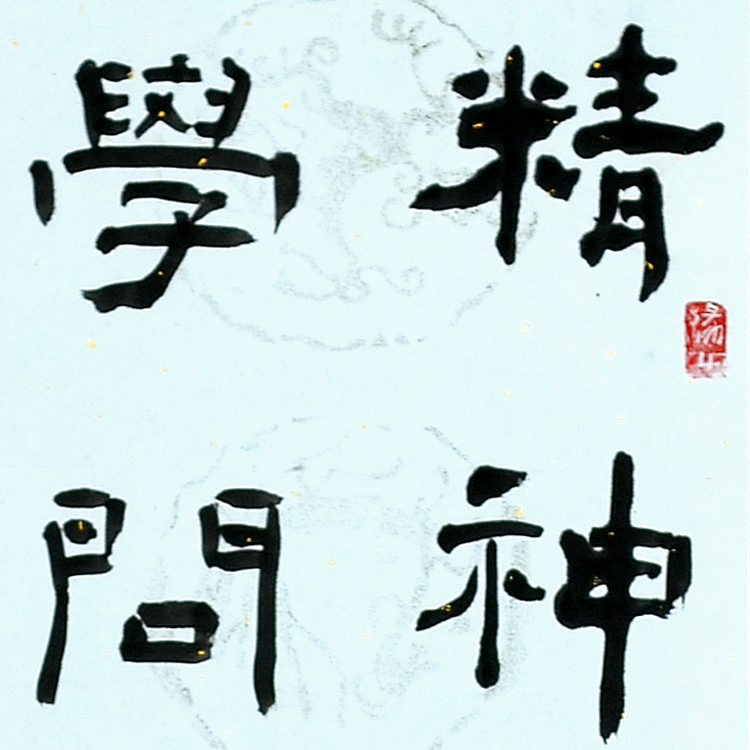 精神
學問